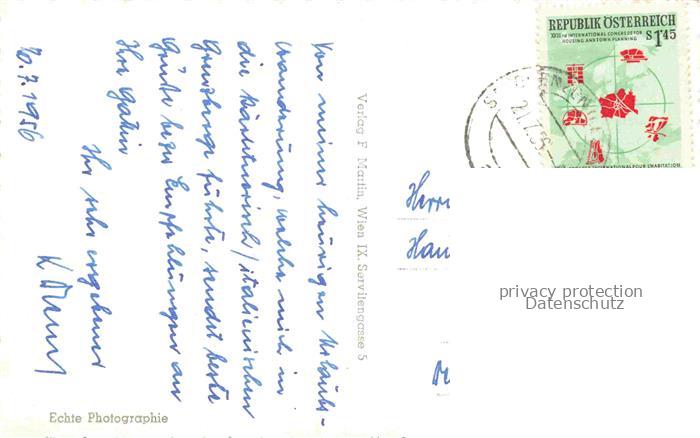 20.7.1956
Von meiner heurigen Urlaubs-
wanderung, welche mich in
die kärntnerisch/italienischen
Grenzberge führte, sendet beste
Grüße bezw. Empfehlungen an
Ihre Gattin
Ihr sehr ergebener
Verlag F. Martin, Wien IX, Servitengasse 5
Echte Photographie
REPUBLIK ÖSTERREICH
XXIIIrd INTERNATIONAL CONGRESS FOR
HOUSING AND TOWN PLANNING
S 1.45
Herr
privacy protection
Datenschutz